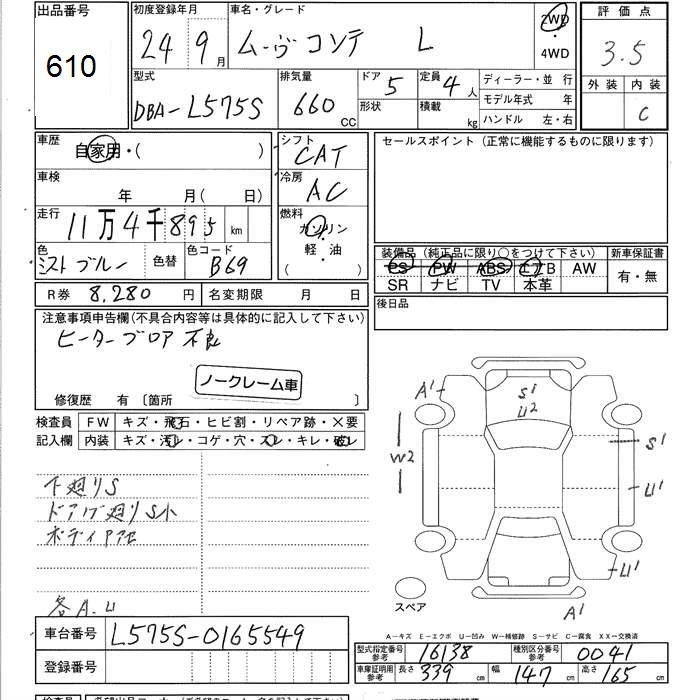 出品番号
610
初度登録年月
24 9月
車名・グレード
ムーヴ コンテ L
2WD
・
4WD
評価点
3.5
外装 内装
C
型式
DBA-L575S
排気量
660 CC
ドア 5
形状
定員 4人
積載 kg
ディーラー・並 行
モデル年式 年
ハンドル 左・右
車歴
自家用・( )
シフト
CAT
セールスポイント (正常に機能するものに限ります)
車検
年 月(日)
冷房
AC
走行
11万4千895 km
燃料
ガソリン
軽・油
( )
色
ミストブルー
色替
色コード
B69
装備品 (純正品に限り○をつけて下さい)
PS PW ABS エアB AW
SR ナビ TV 本革
新車保証書
有・無
R券 8,280 円
名変期限 月 日
後日品
注意事項申告欄(不具合内容等は具体的に記入して下さい)
ヒーターブロア不良
ノークレーム車
修復歴 有 〔箇所 〕
検査員
記入欄
FW キズ・飛石・ヒビ割・リペア跡・×要
内装 キズ・汚レ・コゲ・穴・スレ・キレ・破レ
下廻りS
ドアノブ廻りS小
ボディ
各A.U
A1
S1
U2
W2
S1
U1
U1
A1
スペア
A-キズ E-エクボ U-凹み W-補修跡 S-サビ C-腐食 XX-交換済
車台番号 L575S-0165549
登録番号
型式指定番号
参考
16138
種別区分番号
参考
0041
車庫証明用
参考
長さ 339 cm
幅 147 cm
高さ 165 cm